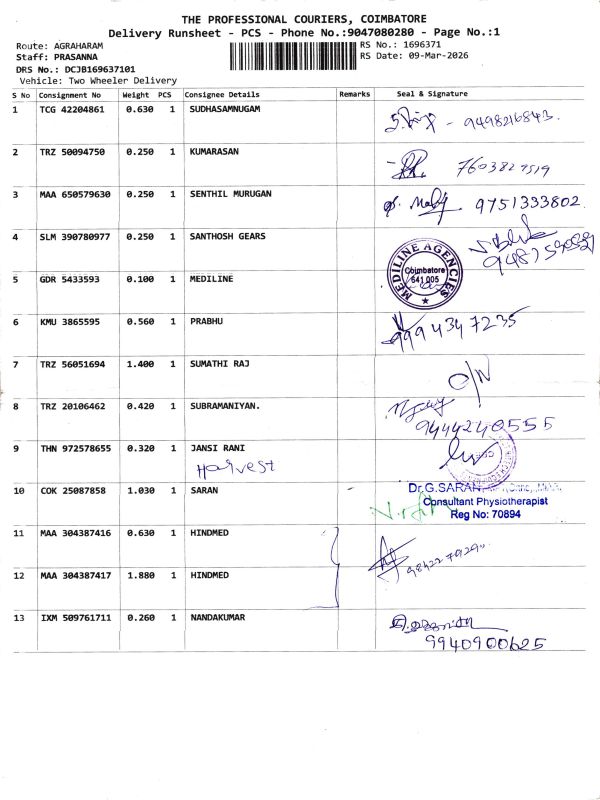 THE PROFESSIONAL COURIERS, COIMBATORE
Delivery Runsheet - PCS - Phone No.:9047080280 - Page No.:1
Route: AGRAHARAM
RS No.: 1696371
Staff: PRASANNA
RS Date: 09-Mar-2026
DRS No.: DCJB169637101
Vehicle: Two Wheeler Delivery
S No Consignment No Weight PCS Consignee Details Remarks Seal & Signature
1 TCG 42204861 0.630 1 SUDHASAMNUGAM
- 9498216843.
2 TRZ 50094750 0.250 1 KUMARASAN
7603827519
3 MAA 650579630 0.250 1 SENTHIL MURUGAN
9751333802
4 SLM 390780977 0.250 1 SANTHOSH GEARS
5 GDR 5433593 0.100 1 MEDILINE
MEDILINE AGENCIES
Coimbatore
641 005
6 KMU 3865595 0.560 1 PRABHU
9994347235
7 TRZ 56051694 1.400 1 SUMATHI RAJ
O/N
8 TRZ 20106462 0.420 1 SUBRAMANIYAN.
9444240555
9 THN 972578655 0.320 1 JANSI RANI
Harvest
10 COK 25087858 1.030 1 SARAN
Dr.G.SARAN,
Consultant Physiotherapist
Reg No: 70894
11 MAA 304387416 0.630 1 HINDMED
12 MAA 304387417 1.880 1 HINDMED
13 IXM 509761711 0.260 1 NANDAKUMAR
9940900625